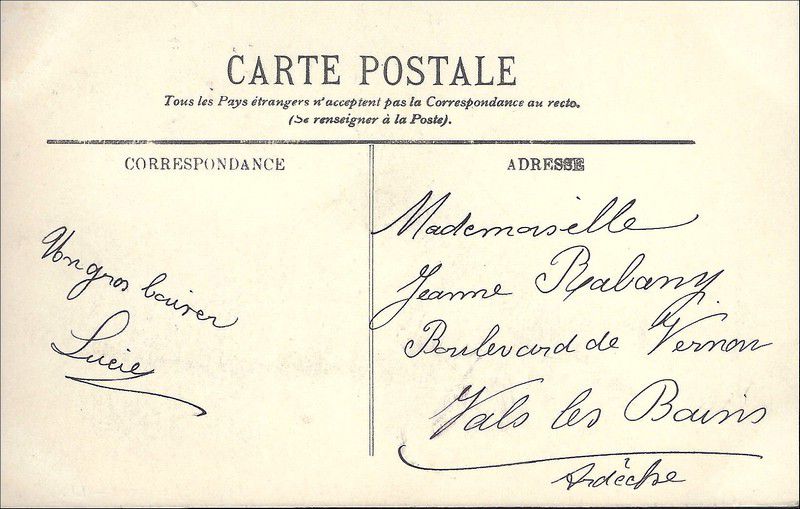 CARTE POSTALE
Tous les Pays étrangers n'acceptent pas la Correspondance au recto.
(Se renseigner à la Poste).
CORRESPONDANCE
ADRESSE
Un gros baiser
Lucie
Mademoiselle
Jeanne Rabany
Boulevard de Vernon
Vals les Bains
Ardèche